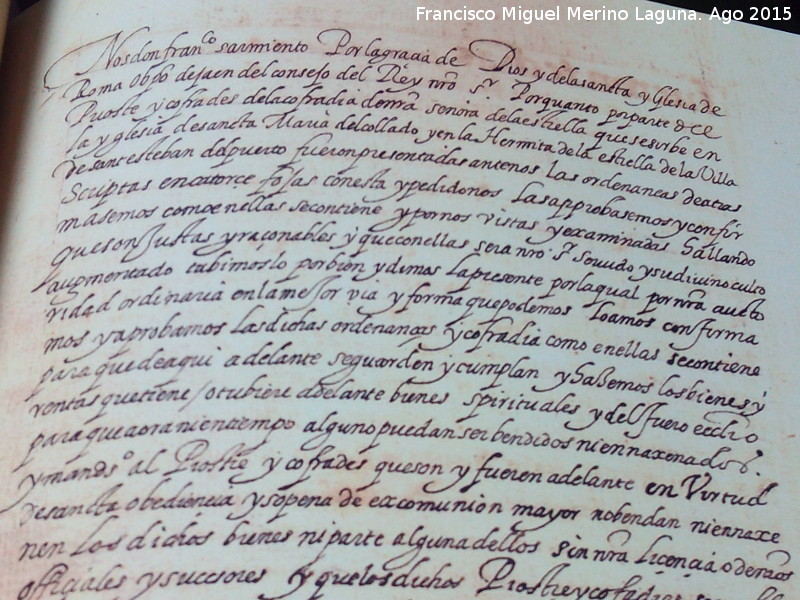 Francisco Miguel Merino Laguna. Ago 2015
Nos don fran.co sarmiento Por la gracia de Dios y de la sancta yglesia de
Roma obpo de jaen del consejo del Rey nro sr. Por quanto por parte de el
Prioste y cofrades de la cofradia de nra senora de la estrella que se sirbe en
la yglesia de sancta Maria del collado y en la Hermita de la estrella de la Villa
de santesteban del puerto fueron presentadas ante nos las ordenancas de atras
Scriptas en catorce fojas con esta y pedidonos las approbasemos y confir
masemos como en ellas se contiene y por nos vistas y examinadas hallando
que son Justas y raconables y que con ellas sera nro sr. seruido y su diuino culto
augmentado tubimoslo por bien y dimos la presente por la qual por nra aucto
ridad ordinaria en la mejor via y forma que podemos loamos confirma
mos y aprobamos las dichas ordenancas y cofradia como en ellas se contiene
para que de aqui adelante se guarden y cumplan y hazemos los bienes y
rentas que tiene / o tubiere adelante bienes spirituales y del fuero ecclico
para que aora ni en tiempo alguno puedan ser bendidos ni ennaxenados.
y mando al Prioste y cofrades que son y fueren adelante en Virtud
de sancta obediencia y so pena de excomunion mayor no bendan ni ennaxe
nen los dichos bienes ni parte alguna dellos sin nra licencia o de nros
officiales y succsores y que los dichos Prioste y cofrades